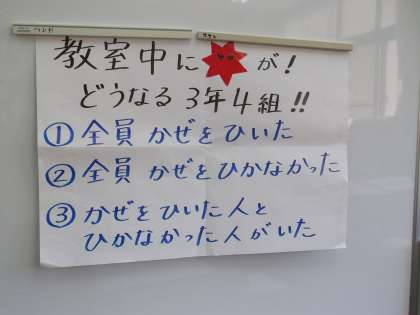 教室中に が!
どうなる3年4組!!
①全員 かぜをひいた
②全員 かぜをひかなかった
③かぜをひいた人と
ひかなかった人がいた